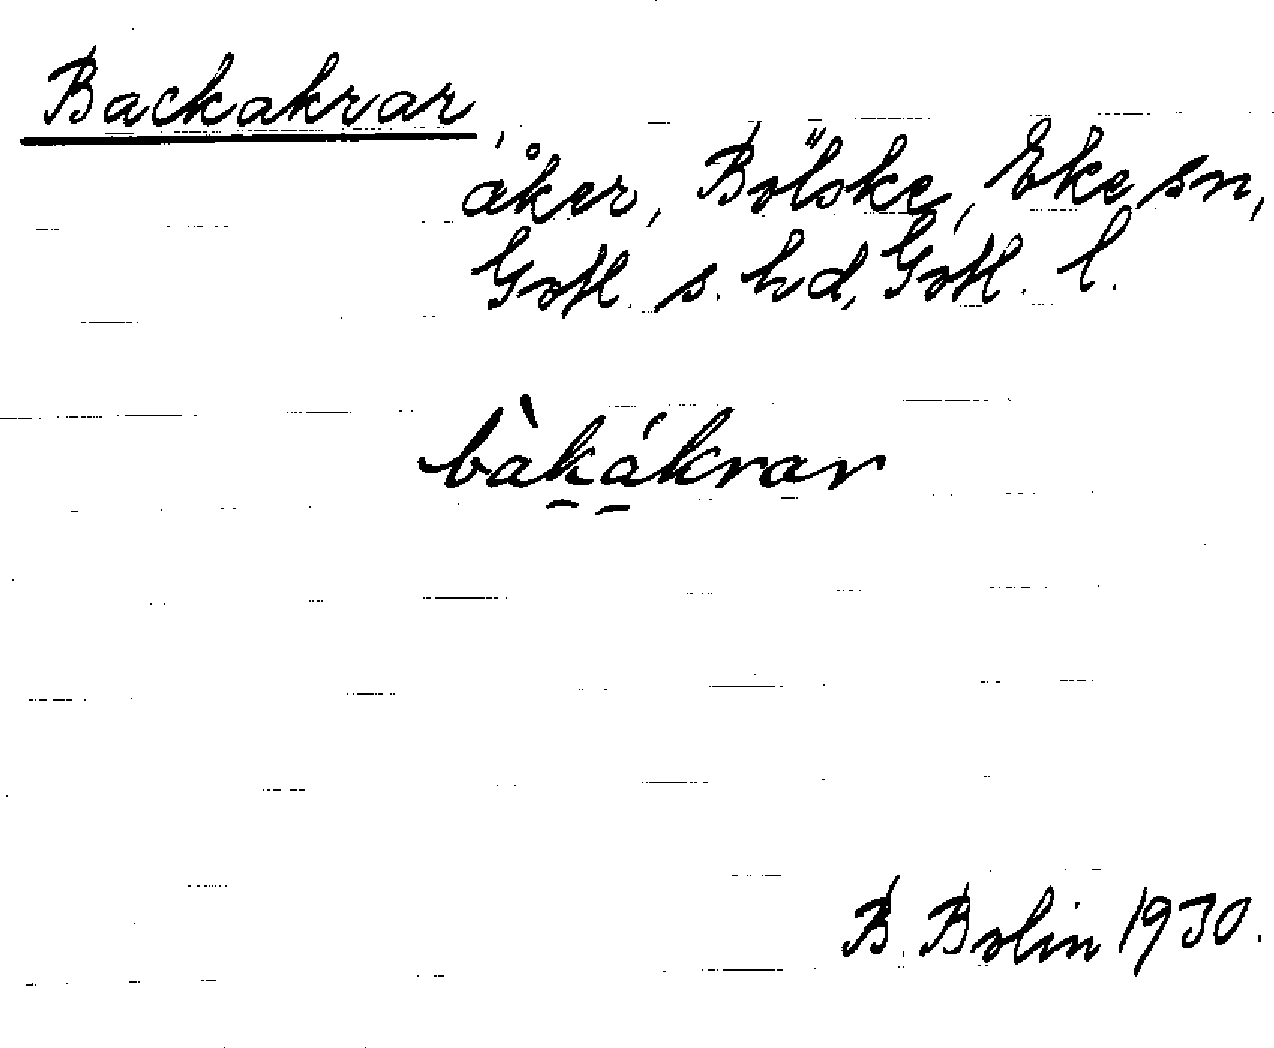 Backakrar,
åker, Bölske, Eke sn,
Gotl. s. hd, Gotl. l.
bàkákrar
B. Bolin 1930.